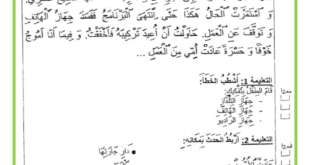 وَ اسْتَمَرَّتْ الْحَالُ هَكَذَا حَتَّى اِنْتَهَى الْبَرْنَامَجُ فَفَقَدَ جِهَازُ الْهَاتِفِ
وَ تَوَقَّفَ عَنِ الْعَمَلِ. حَاوَلْتُ أَنْ أُعِيدَ تَرْكِيبَهُ فَأَخْفَقْتُ؛ وَ فِيمَا أَنَا أَمُوجُ
خَوْفًا وَ حَسْرَةً عَادَتْ أُمِّي مِنَ الْعَمَلِ ...
التعليمة 1: أَشْطُبُ الْخَطَأَ:
قَامَ الطِّفْلُ بِتَفْكِيكِ:
- جِهَازِ التِّلْفَازِ
- جِهَازِ الْهَاتِفِ
- جِهَازِ الرَّادِيُو
التعليمة 2: أَرْبُطُ الْحَدَثَ بِمَكَانِهِ:
• دَارِ جَارَتِهَا